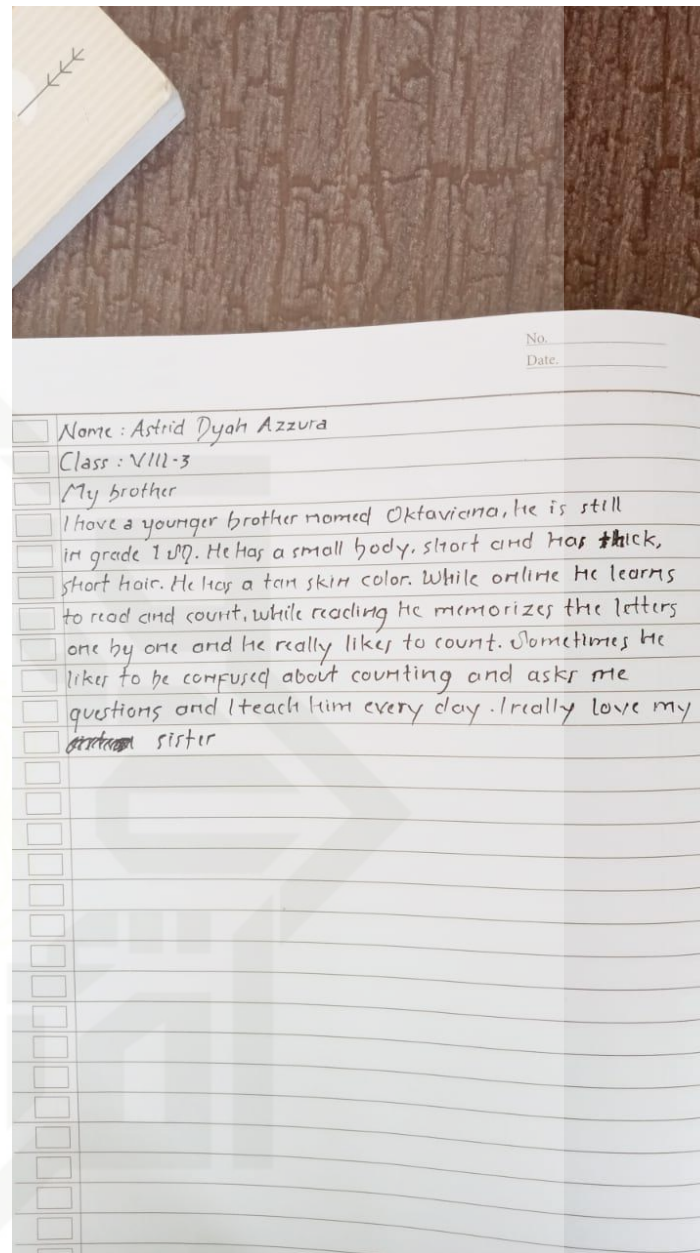 No.
Date.
Name : Astrid Dyah Azzura
Class : VIII-3
My brother
I have a younger brother named Oktaviana, he is still
in grade 1 SD. He Has a small body, short and has thick,
short hair. He has a tan skin color. While online He learns
to read and count, while reading he memorizes the letters
one by one and he really likes to count. Sometimes He
likes to be confused about counting and asks me
questions and I teach him every day. I really love my
sister